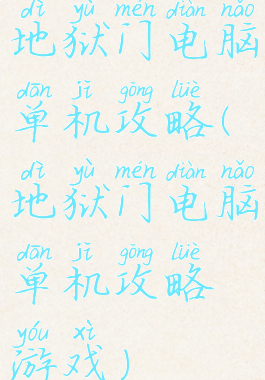 dì yù mén diàn nǎo
地狱门电脑
dān jī gōng lüè
单机攻略(
dì yù mén diàn nǎo
地狱门电脑
dān jī gōng lüè
单机攻略
yóu xì
游戏)